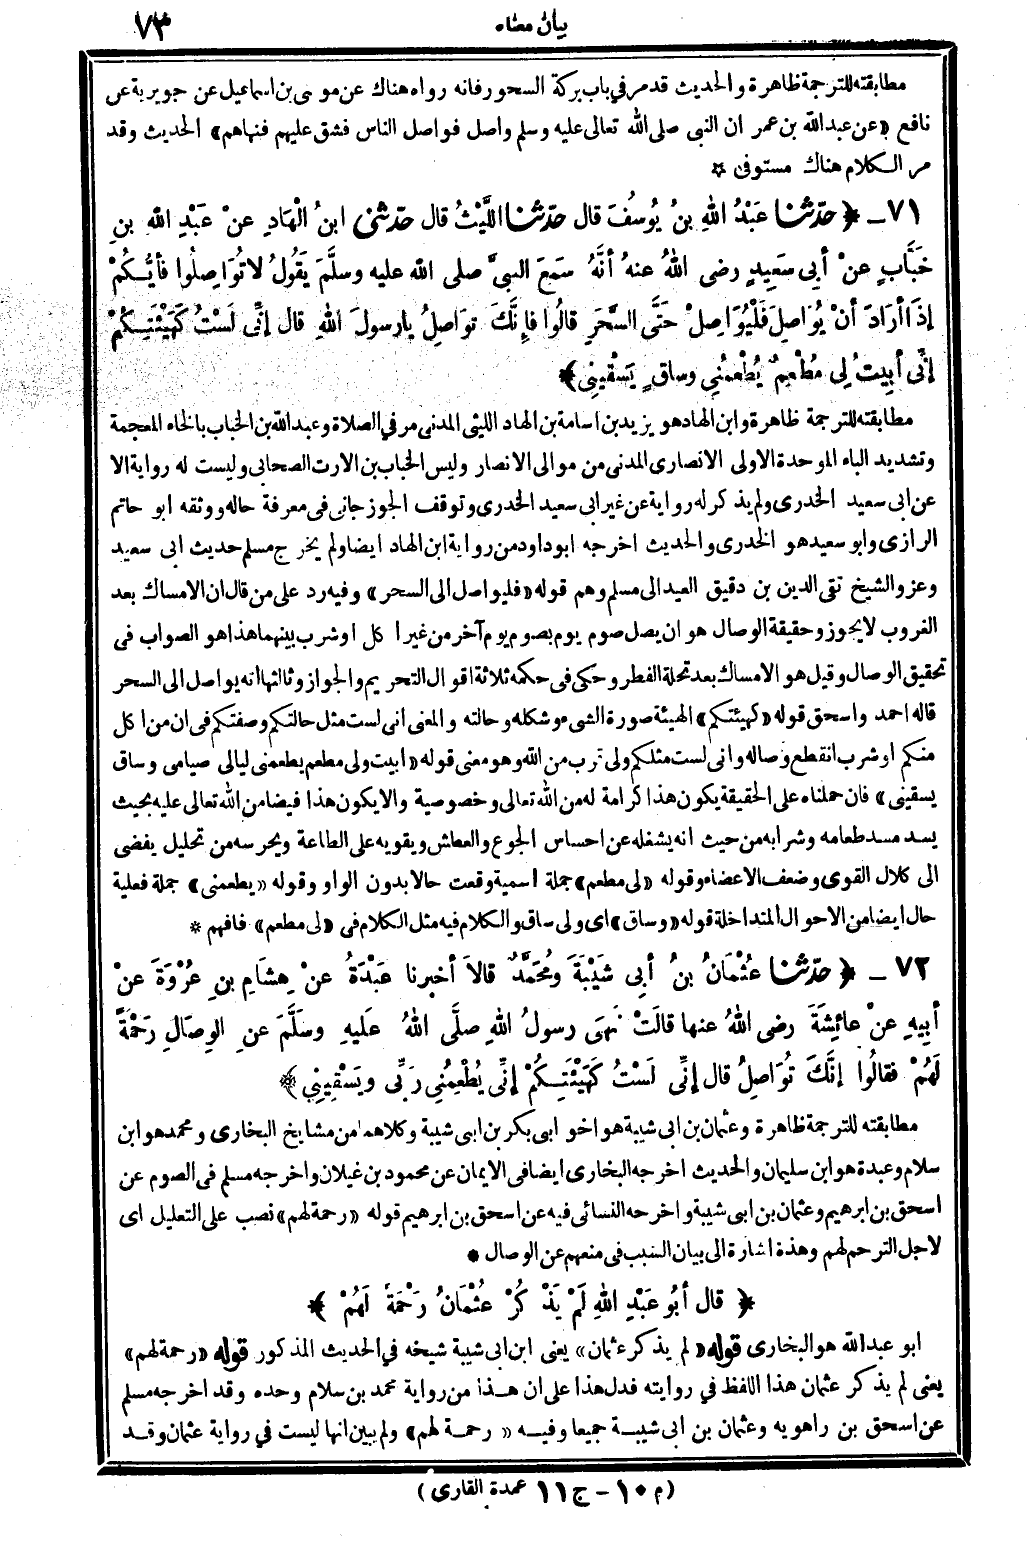 بيان معناه ٧٣
مطابقته للترجمة ظاهرة والحديث قد مر في باب بركة السحور فانه رواه هناك عن موسى بن اسماعيل عن جويرية عن
نافع «عن عبدالله بن عمر ان النبي صلى الله تعالى عليه وسلم واصل فواصل الناس فشق عليهم فنهاهم» الحديث وقد
مر الكلام هناك مستوفى *
٧١ـ ﴿حدثنا عَبْدُ اللهِ بنُ يُوسُفَ قال حدثنا اللَّيْثُ قال حدثني ابنُ الْهَادِ عنْ عَبْدِ اللهِ بنِ
خَبَّابٍ عنْ أبي سَعِيدٍ رضى اللهُ عنهُ أنَّهُ سَمِعَ النبيَّ صلى الله عليه وسلَّمَ يَقُولُ لاتُوَاصِلُوا فأيُّكُمْ
إذَا أرَادَ أنْ يُوَاصِلَ فَلْيُوَاصِلْ حَتَّى السَّحَرِ قالُوا فإنَّكَ توَاصِلُ يارسولَ اللهِ قال إنِّي لَسْتُ كَهَيْئَتِكُمْ
إنِّي أبِيتُ لِي مُطْعِمٌ يُطْعِمُنِي وساقٍ يَسْقِينِي﴾*
مطابقته للترجمة ظاهرة وابن الهاد هو يزيد بن اسامة بن الهاد الليثى المدنى مر في الصلاة وعبدالله بن الخباب بالخاء المعجمة
وتشديد الباء الموحدة الاولى الانصارى المدنى من موالى الانصار وليس الخباب بن الارت الصحابى وليست له رواية الا
عن ابى سعيد الخدرى ولم يذكر له رواية عن غير ابى سعيد الخدرى وتوقف الجوزجانى فى معرفة حاله ووثقه ابو حاتم
الرازى وابو سعيد هو الخدرى والحديث اخرجه ابوداود من رواية ابن الهاد ايضا ولم يخرج مسلم حديث ابى سعيد
وعزو الشيخ تقى الدين بن دقيق العيد الى مسلم وهم قوله «فليواصل الى السحر» وفيه رد على من قال ان الامساك بعد
الغروب لايجوز وحقيقة الوصال هو ان يصل صوم يوم بصوم يوم آخر من غير اكل اوشرب بينهما هذا هو الصواب فى
تحقيق الوصال وقيل هو الامساك بعد تحلة الفطر وحكى فى حكمه ثلاثة اقوال التحريم والجواز وثالثها أنه يواصل الى السحر
قاله احمد واسحق قوله «كهيئتكم» الهيئة صورة الشىء وشكله وحالته والمعنى انى لست مثل حالتكم وصفتكم فى ان من اكل
منكم اوشرب انقطع وصاله وانى لست مثلكم ولى قرب من الله وهو معنى قوله «ابيت ولى مطعم يطعمنى ليالى صيامى وساق
يسقينى» فان حملناه على الحقيقة يكون هذا كرامة له من الله تعالى وخصوصية والا يكون هذا فيضا من الله تعالى عليه بحيث
يسد مسد طعامه وشرابه من حيث انه يشغله عن احساس الجوع والعطاش ويقويه على الطاعة ويحرسه من تحليل يفضى
الى كلال القوى وضعف الاعضاء وقوله «لى مطعم» جملة اسمية وقعت حالا بدون الواو وقوله «يطعمنى» جملة فعلية
حال ايضا من الاحوال المتداخلة قوله «وساق» اى ولى ساق والكلام فيه مثل الكلام فى «لى مطعم» فافهم *
٧٢ ـ ﴿حدثنا عُثْمَانُ بنُ أبِي شَيْبَةَ ومُحَمَّدٌ قالاَ أخبرنا عَبْدَةُ عنْ هِشَامِ بنِ عُرْوَةَ عنْ
أبِيهِ عنْ عائِشَةَ رضى اللهُ عنها قالَتْ نَهَى رسولُ اللهِ صلَّى اللهُ عَليهِ وسَلَّمَ عنِ الوِصَالِ رَحْمَةً
لَهُمْ فقالُوا إنَّكَ تُوَاصِلُ قال إنِّي لَسْتُ كَهَيْئَتِكُمْ إنِّي يُطْعِمُنِي رَبِّي ويَسْقِينِي﴾*
مطابقته للترجمة ظاهرة وعثمان بن ابى شيبة هو اخو ابى بكر بن ابى شيبة وكلاهما من مشايخ البخارى ومحمد هو ابن
سلام وعبدة هو ابن سليمان والحديث اخرجه البخارى ايضا فى الايمان عن محمود بن غيلان واخرجه مسلم فى الصوم عن
اسحق بن ابرهيم وعثمان بن ابى شيبة واخرجه النسائى فيه عن اسحق بن ابرهيم قوله «رحمة لهم» نصب على التعليل اى
لاجل الترحم لهم وهذة اشارة الى بيان السبب فى منعهم عن الوصال *
﴿قال أبُو عَبْدِ اللهِ لَمْ يَذْكُرْ عُثْمَانُ رَحْمَةً لَهُمْ﴾*
ابو عبدالله هو البخارى قوله «لم يذكر عثمان» يعنى ابن ابى شيبة شيخه في الحديث المذكور قوله «رحمة لهم»
يعنى لم يذكر عثمان هذا اللفظ في روايته فدل هذا على ان هذا من رواية محمد بن سلام وحده وقد اخرجه مسلم
عن اسحق بن راهويه وعثمان بن ابى شيبة جميعا وفيه «رحمة لهم» ولم يبين انها ليست في رواية عثمان وقد
(م ١٠ ـ ج ١١ عمدة القارى)